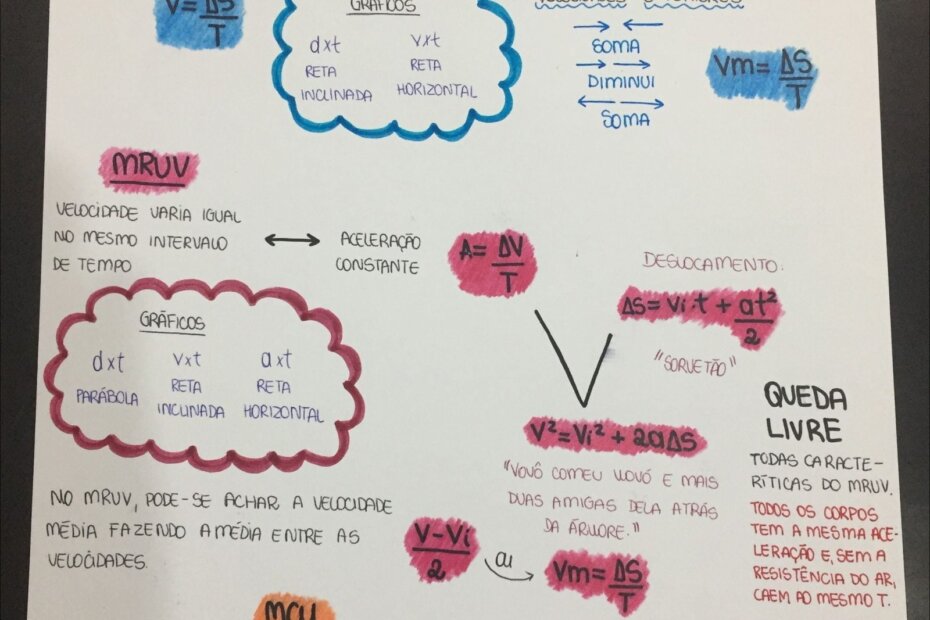 V = ΔS/T
GRÁFICOS
dxt
RETA
INCLINADA
vxt
RETA
HORIZONTAL
SOMA
DIMINUI
SOMA
Vm = ΔS/T
MRUV
VELOCIDADE VARIA IGUAL
NO MESMO INTERVALO
DE TEMPO
ACELERAÇÃO
CONSTANTE
A = ΔV/T
DESLOCAMENTO.
ΔS = Vi.t + at²/2
"SORVETÃO"
GRÁFICOS
dxt
PARÁBOLA
vxt
RETA
INCLINADA
axt
RETA
HORIZONTAL
V² = Vi² + 2aΔS
"VOVÔ COMEU VOVÓ E MAIS
DUAS AMIGAS DELA ATRÁS
DA ÁRVORE."
QUEDA
LIVRE
TODAS CARACTE-
RÍTICAS DO MRUV.
TODOS OS CORPOS
TEM A MESMA ACE-
LERAÇÃO E, SEM A
RESISTÊNCIA DO AR,
CAEM AO MESMO T.
NO MRUV, PODE-SE ACHAR A VELOCIDADE
MÉDIA FAZENDO A MÉDIA ENTRE AS
VELOCIDADES.
V-Vi/2
ou
Vm = ΔS/T
MCU